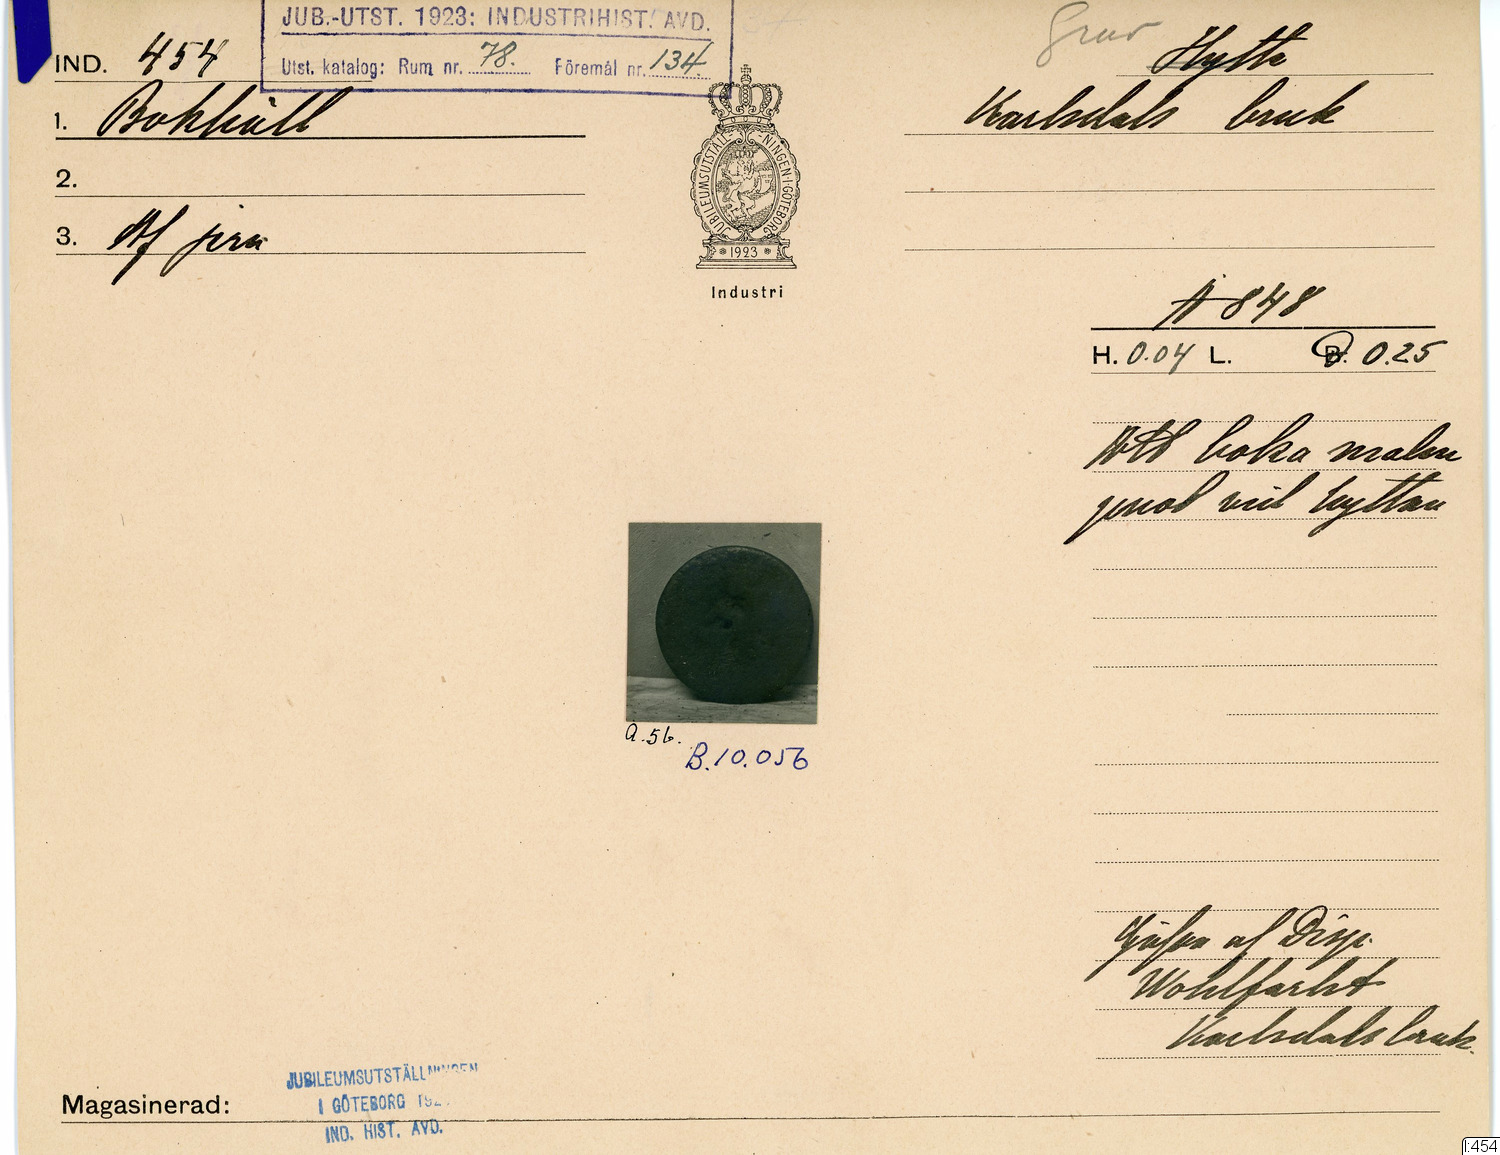 JUB.-UTST. 1923: INDUSTRIHIST. AVD.
Utst. katalog: Rum nr. 78. Föremål nr. 134.
IND. 454
1. Bokhäll
2.
3. Af jern
JUBILEUMSUTSTÄLLNINGEN·I·GÖTEBORG
1923
Industri
Gruv
Hytta
Karlsdals bruk
A 848
H. 0.04 L. D. 0.25
Att boka malm
med vid hyttan
a.56.
B.10.056
Gåfva af Disp.
Wohlfarht
Karlsdals bruk.
JUBILEUMSUTSTÄLLNINGEN
I GÖTEBORG 192
IND. HIST. AVD.
Magasinerad:
I:454